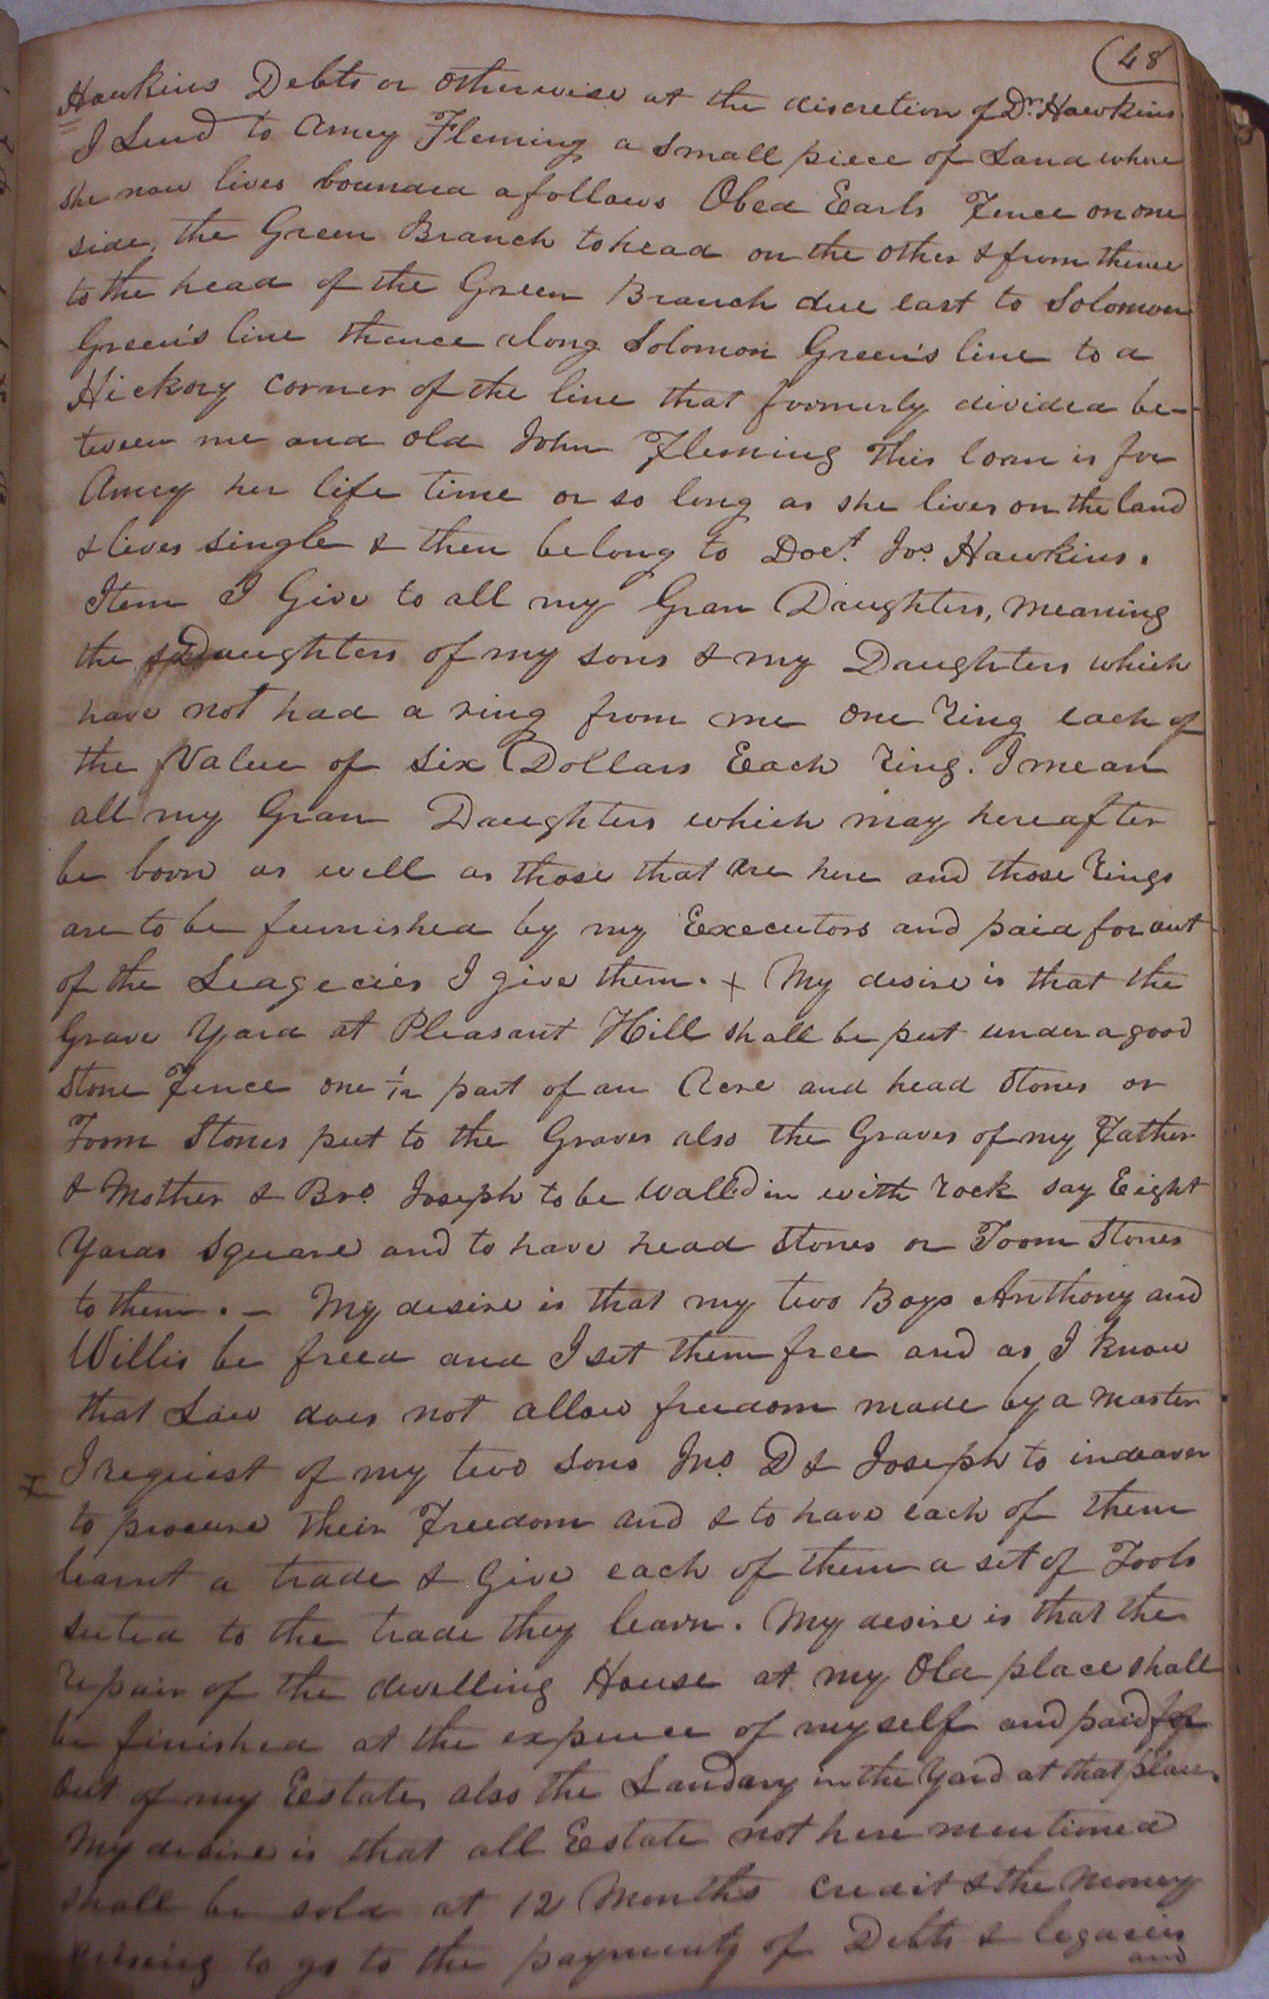 (48
Hawkins Debts or otherwise at the discretion of Dr. Hawkins
I Lend to Amey Fleming a small piece of Land where
she now lives bounded a follows Obed Earls Fence on one
side, the Green Branch to head on the other & from thence
to the head of the Green Branch due east to Solomon
Green's line thence along Solomon Green's line to a
Hickory corner of the line that formerly divided be-
tween me and old John Fleming this loan is for
Amey her life time or so long as she lives on the land
& lives single & then belong to Doct. Jos. Hawkins.
Item I Give to all my Gran Daughters, meaning
the Daughters of my sons & my Daughters which
have not had a ring from me one Ring each of
the Value of six Dollars Each Ring. I mean
all my Gran Daughters which may hereafter
be born as well as those that are here and those Rings
are to be furnished by my Executors and paid for out
of the Leagecies I give them. + My desire is that the
Grave Yard at Pleasant Hill shall be put under a good
Stone Fence one 1/12 part of an Acre and head Stones or
Toom Stones put to the Graves also the Graves of my Father
& Mother & Bro. Joseph to be Walled in with rock say Eight
Yards Square and to have head Stones or Toom Stones
to them. - My desire is that my two Boys Anthony and
Willis be freed and I set them free and as I know
that Law does not allow freedom made by a master
I request of my two sons Jno. D & Joseph to indeavor
to procure their Freedom and & to have each of them
learnt a trade & Give each of them a set of Tools
suted to the trade they learn. My desire is that the
repair of the dwelling House at my Old place shall
be finished at the expence of myself and paid for
out of my Eestate, also the Landary in the Yard at that place.
My desire is that all Eestate not here mentioned
shall be sold at 12 Months credit & the money
arising to go to the payment of Debts & legacies
and